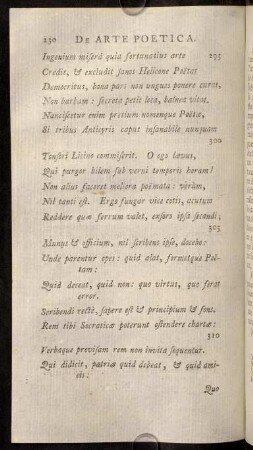 230 De ARTE POETICA.
Ingenium miserâ quia fortunatius arte 295
Credit, & excludit sanos Helicone Poëtas
Democritus, bona pars non ungues ponere curat,
Non barbam: secreta petit loca, balnea vitat.
Nanciscetur enim pretium nomenque Poëtæ,
Si tribus Anticyris caput insanabile nunquam
300
Tonsori Licino commiserit. O ego lævus,
Qui purgor bilem sub verni temporis horam!
Non alius faceret meliora poëmata: verùm,
Nil tanti est. Ergo fungar vice cotis, acutum
Reddere quæ ferrum valet, exsors ipsa secandi;
305
Munus & officium, nil scribens ipse, docebo:
Unde parentur opes: quid alat, formetque Poë-
tam:
Quid deceat, quid non: quo virtus, quo ferat
error.
Scribendi rectè, sapere est & principium & fons.
Rem tibi Socraticæ poterunt ostendere chartæ:
310
Verbaque provisam rem non invita sequentur.
Qui didicit, patriæ quid debeat, & quid ami-
cis:
Quo